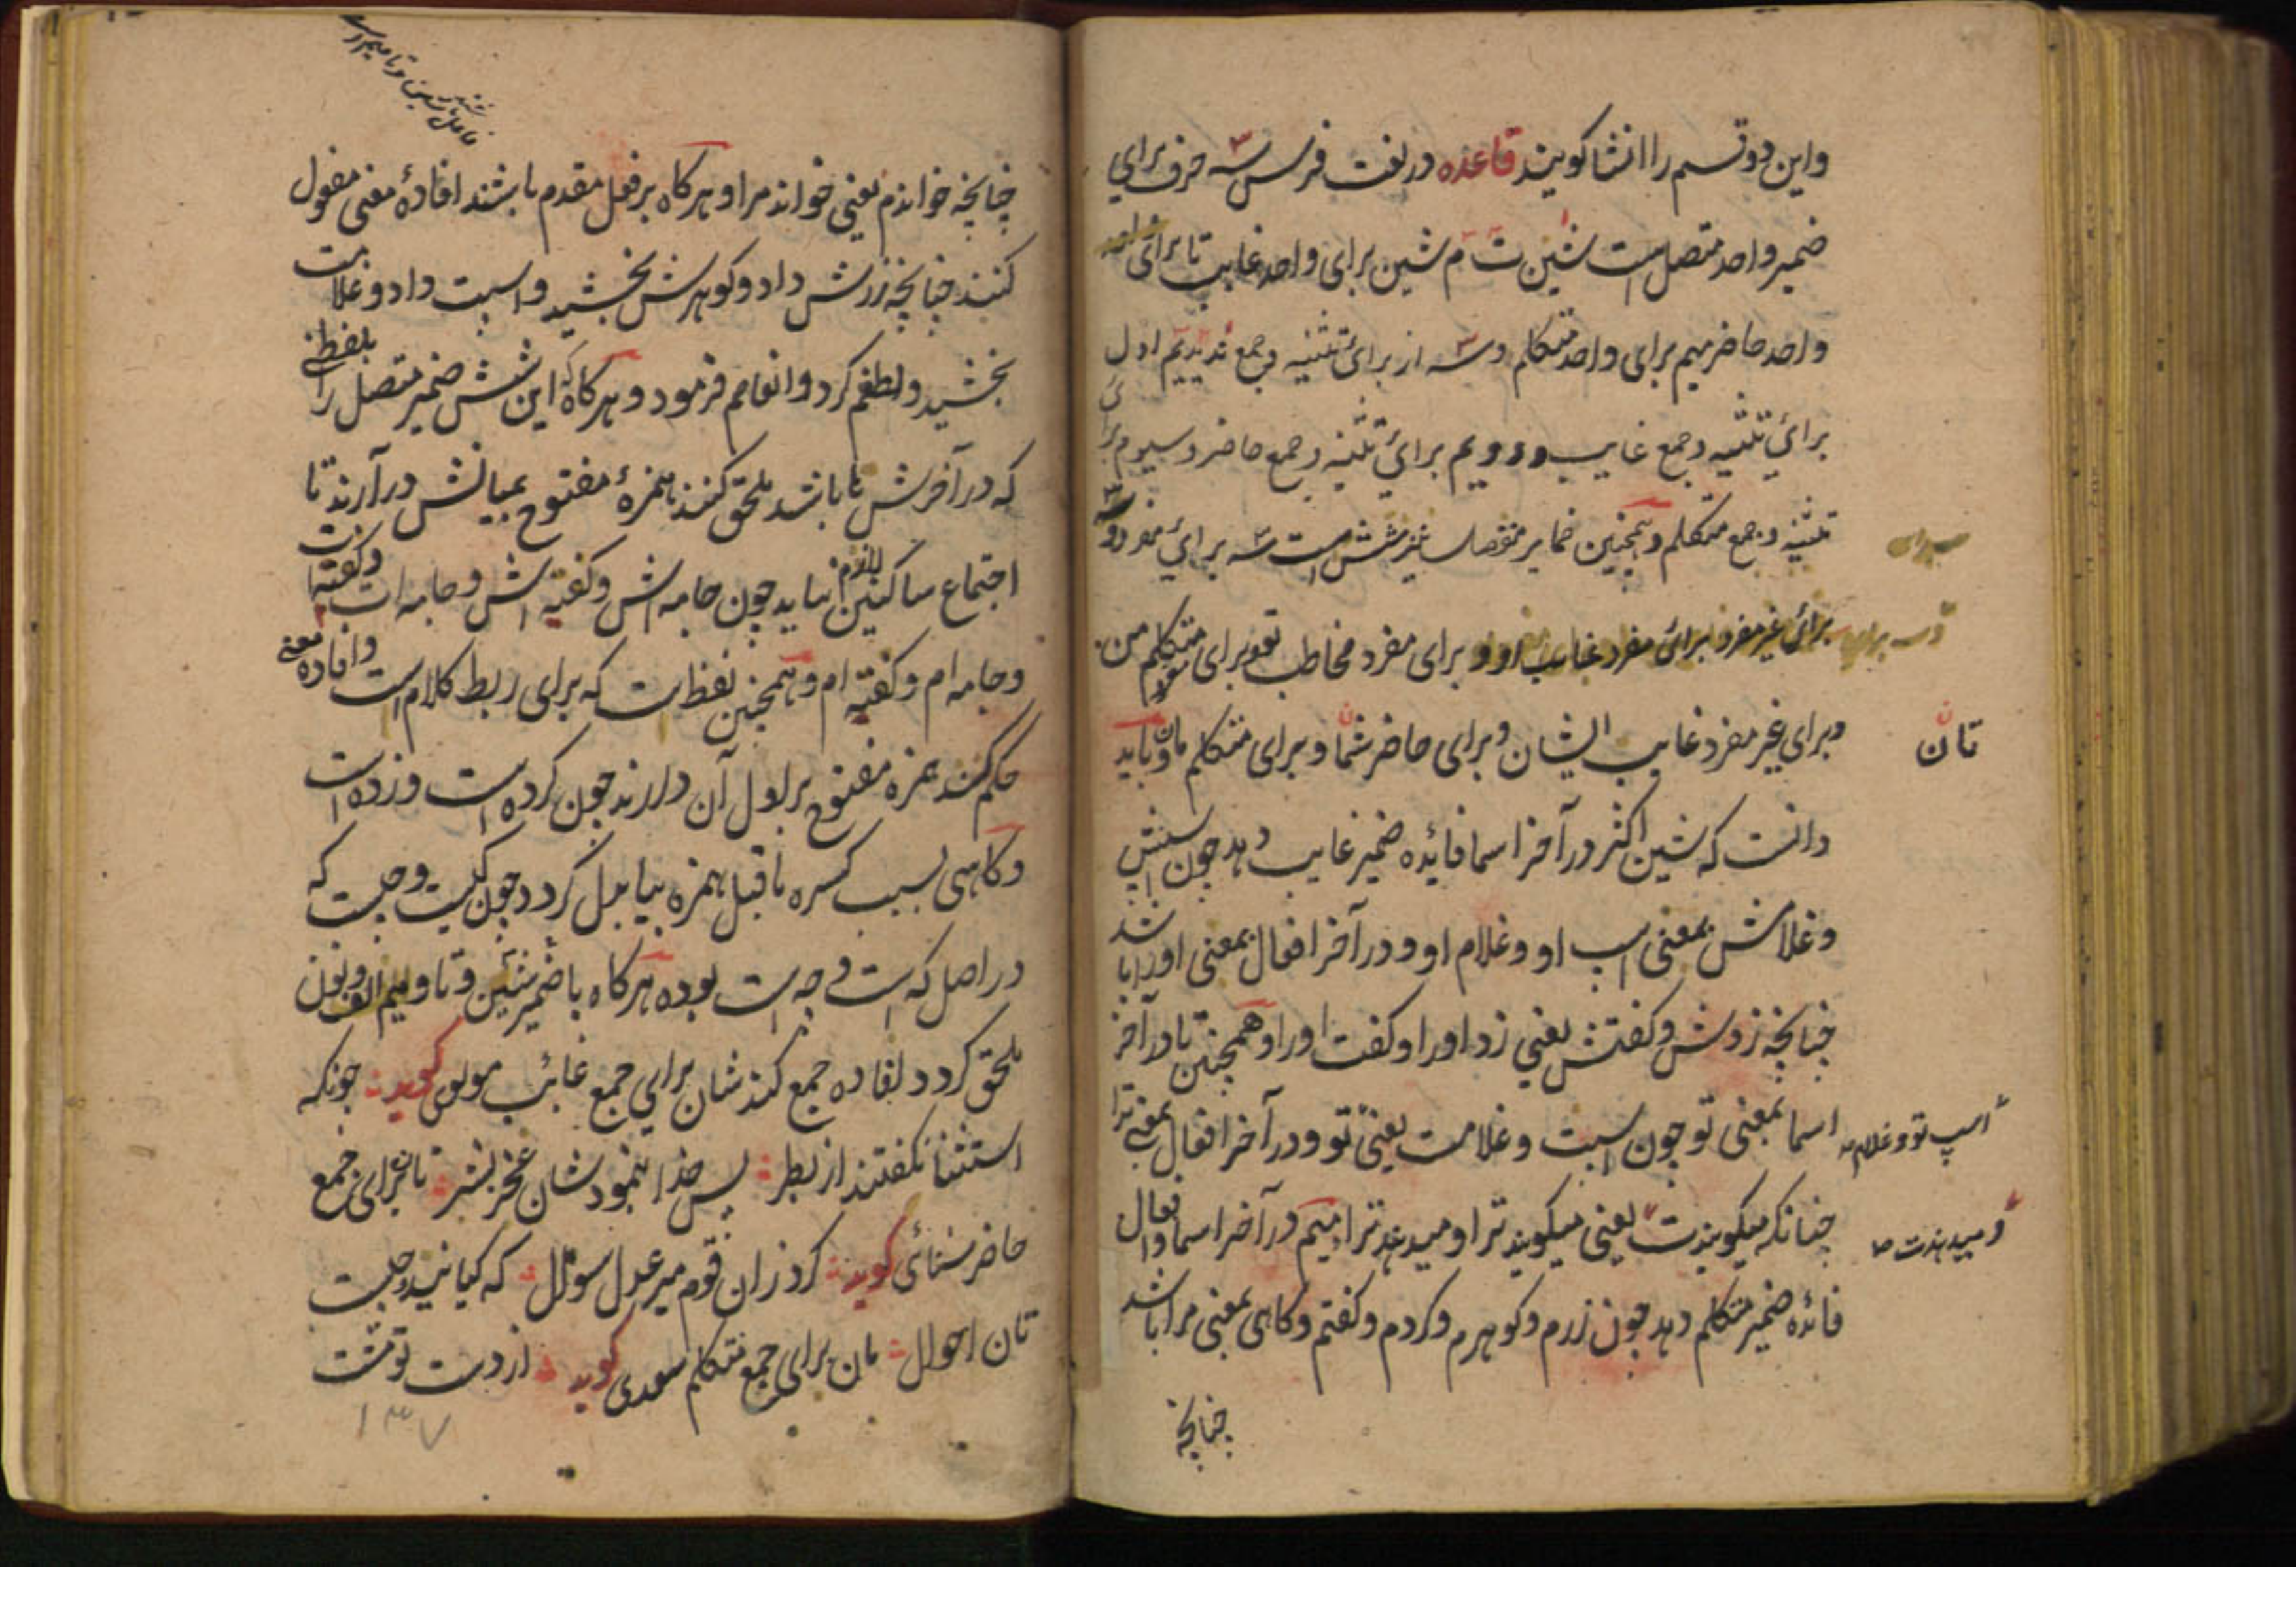 واین دو قسم را انشا کویند قاعده در لغت فرس سه حرف برای
ضمیر واحد متصل است شین ت م شین برای واحد غایب تا برای
واحد حاضر میم برای واحد متکلم وسه از برای تثنیه وجمع ند ید یم اول
برائ تثنیه وجمع غایب ودوم برائ تثنیه وجمع حاضر وسیوم برای
تثنیه وجمع متکلم وهمچنین ضمایر منفصله نیز شش است سه برائ مفرد و
برائ غیر مفرد برائ مفرد غایب او و برای مفرد مخاطب تو وبرای متکلم من
وبرای غیر مفرد غایب ایشان وبرای حاضر شما وبرای متکلم ما وباید
تان
دانست که شین اکثر در آخر اسما فائده ضمیر غایب دهد چون اسپش
وغلامش بمعنی اسپ او وغلام او ودر آخر افعال بمعنی اورا باشد
چنانچه زدش وکفتش یعنی زد اورا وکفت اورا وهمچنین تا در آخر
اسما بمعنی تو چون اسپت وغلامت یعنی تو ودر آخر افعال بمعنی ترا
اسپ تو وغلام
چنانکه میکویندت یعنی میکویند ترا ومیدهند ترا میم در آخر اسما وافعال
ومیدهندت
فائده ضمیر متکلم دهد چون زرم وکوهرم وکردم وکفتم وکاهی بمعنی مرا باشد
چنانچه
چنانچه خواندم یعنی خواند مرا وهرکاه بر فعل مقدم باشند افادۀ معنی مفعول
کنند چنانچه زرش داد وکوهرش بخشید واسپت داد وغلامت
بخشید ولطفم کرد وانعامم فرمود وهرکاه که این شش ضمیر متصل را بلفظی
که در آخرش ها باشد ملحق کنند همزۀ مفتوح بمیانش در آرند تا
اجتماع ساکنین لازم نیاید چون جامه اش وکفته اش وجامه ات وکفته ات
وجامه ام وکفته ام وهمچنین لفظ است که برای ربط کلام است وافاده معنی
حکم کند همزه مفتوح بر اول آن در آرند چون کرده است وزده است
وکاهی بسبب کسره ماقبل همزه بیا بدل کردد چون کیست وچیست که
در اصل که است وچه است بوده هرکاه با ضمیر شین وتا ومیم الف ونون
ملحق کردد افاده جمع کند شان برای جمع غائب مولوی کوید چونکه
استثنا نکفتند از بطر پس خدا بنمود شان عجز بشر تان برای جمع
حاضر سنائی کوید کرد زان قوم میر عدل سوال که کیانید وچیست
تان احوال مان برای جمع متکلم سعدی کوید از دست تو مشت
۱۳۷